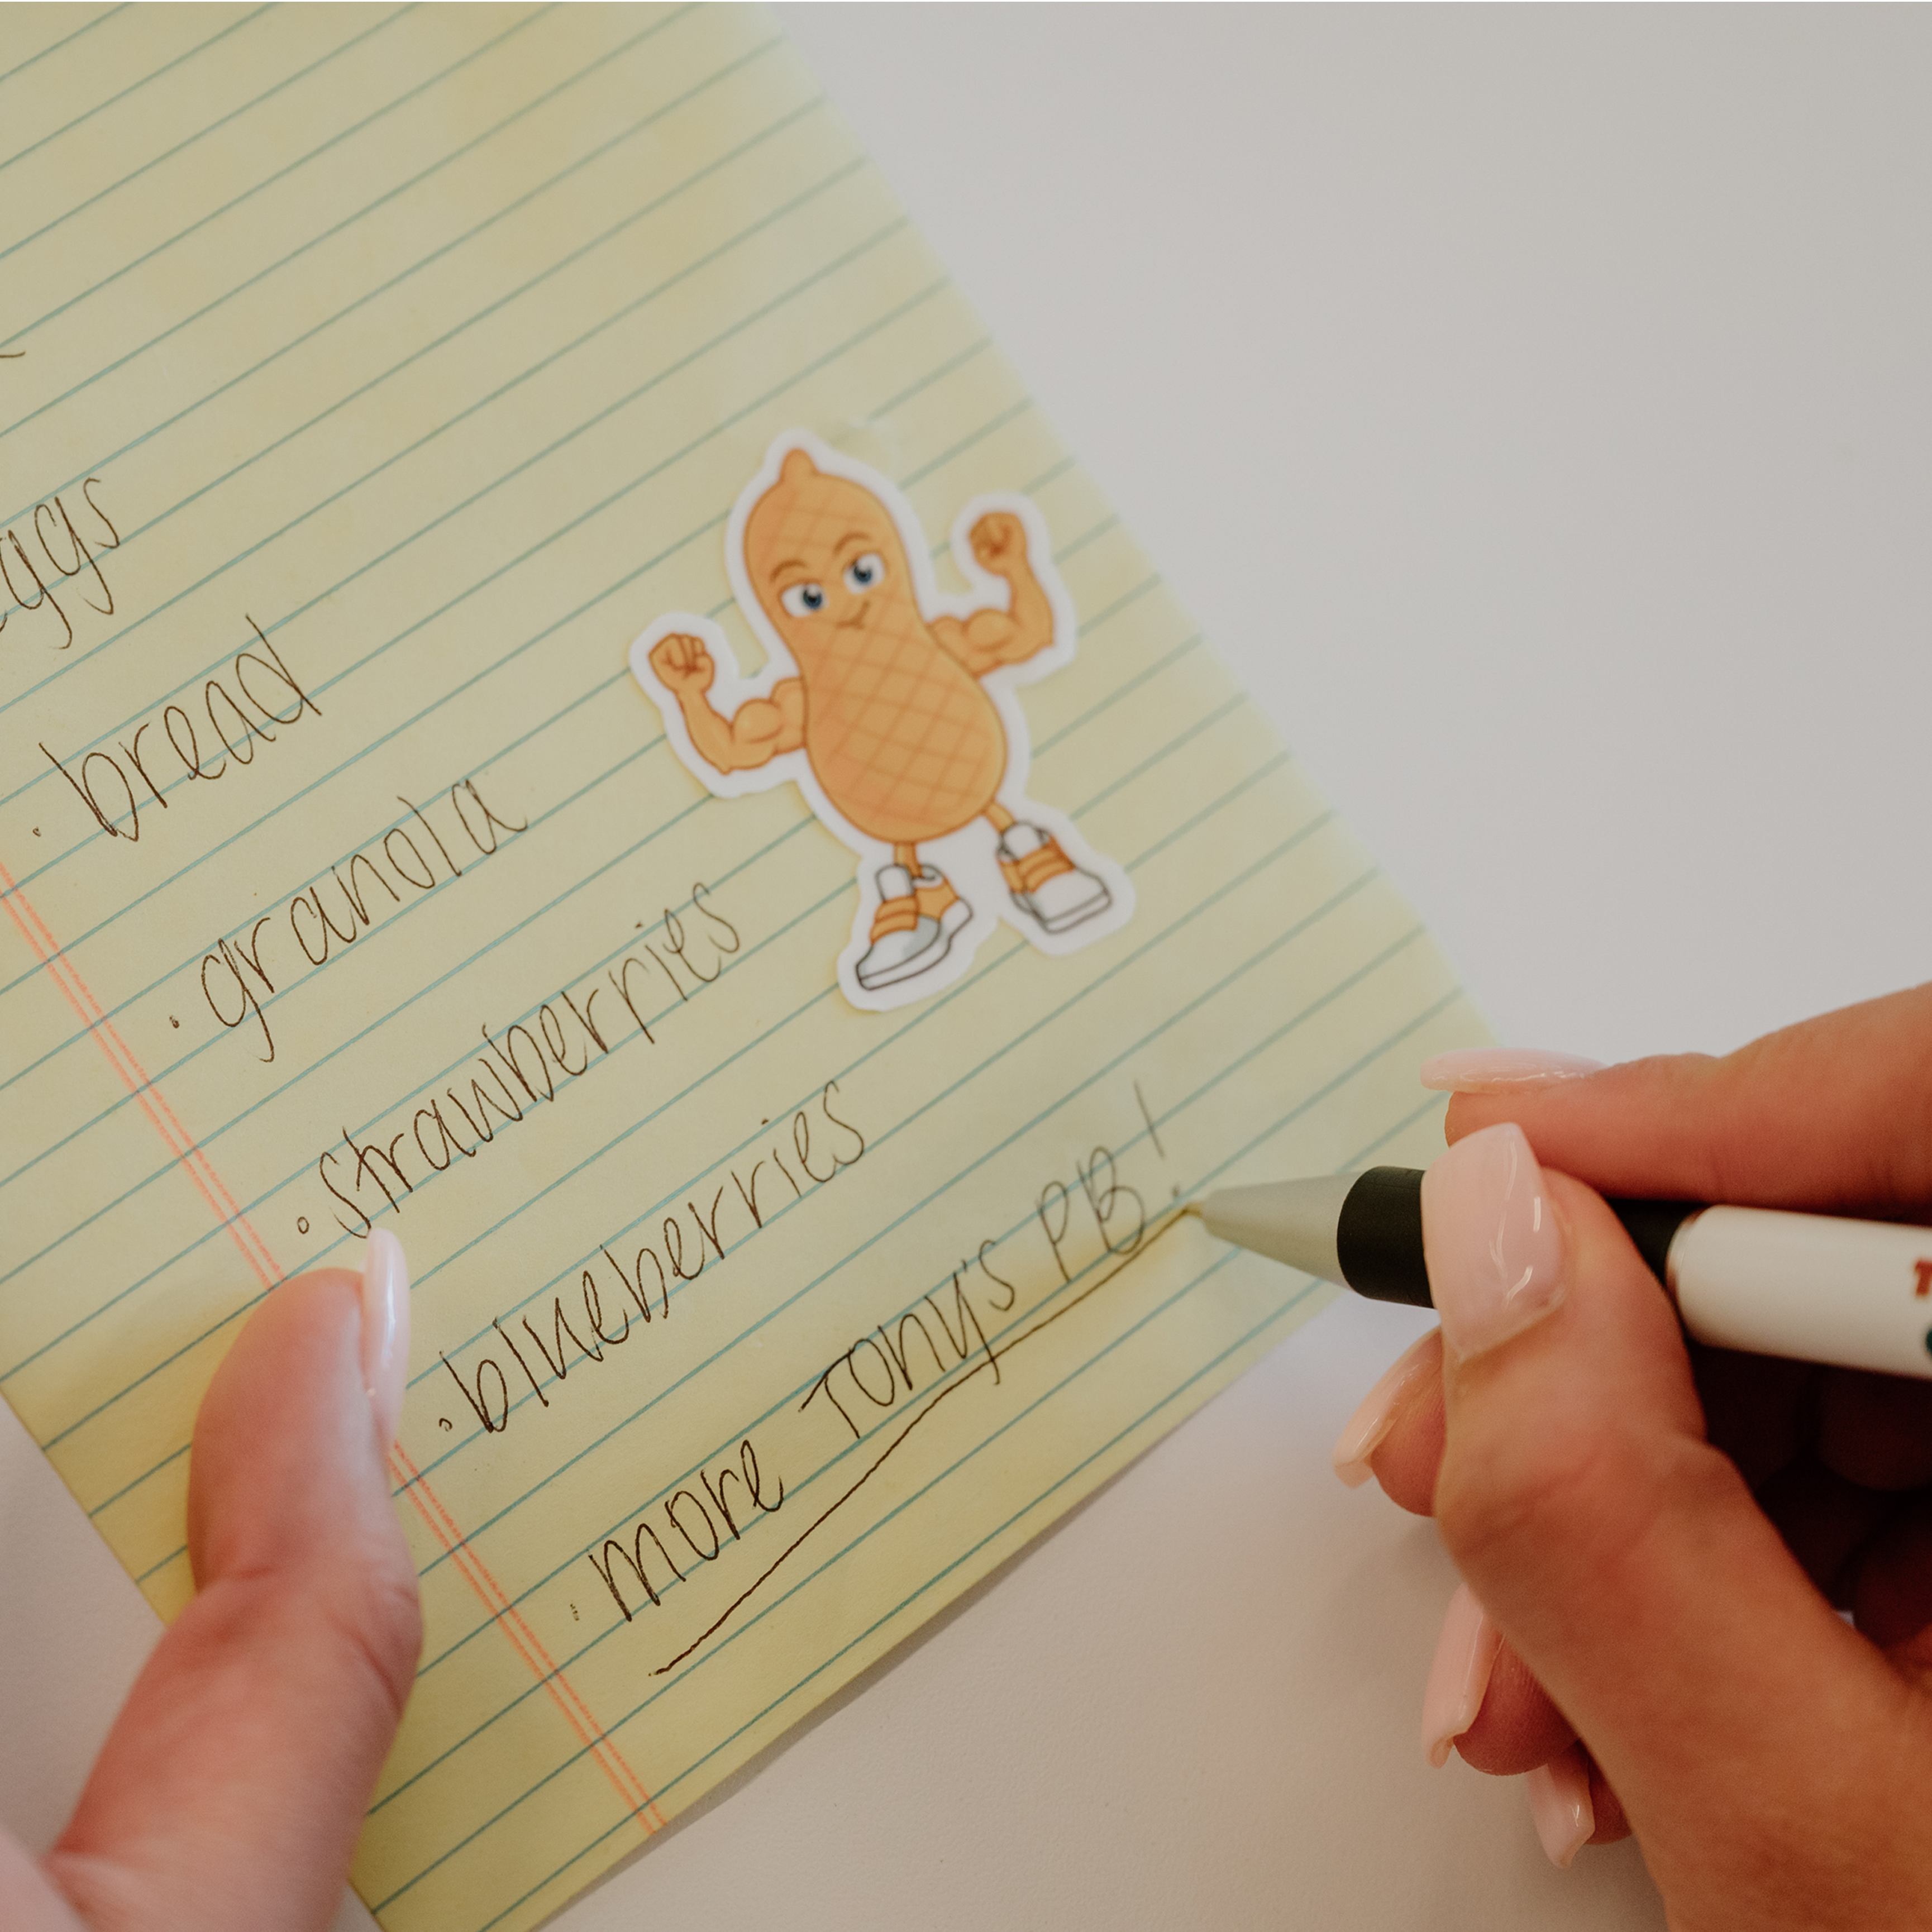 eggs
· bread
· granola
· strawberries
· blueberries
· more Tony's PB!